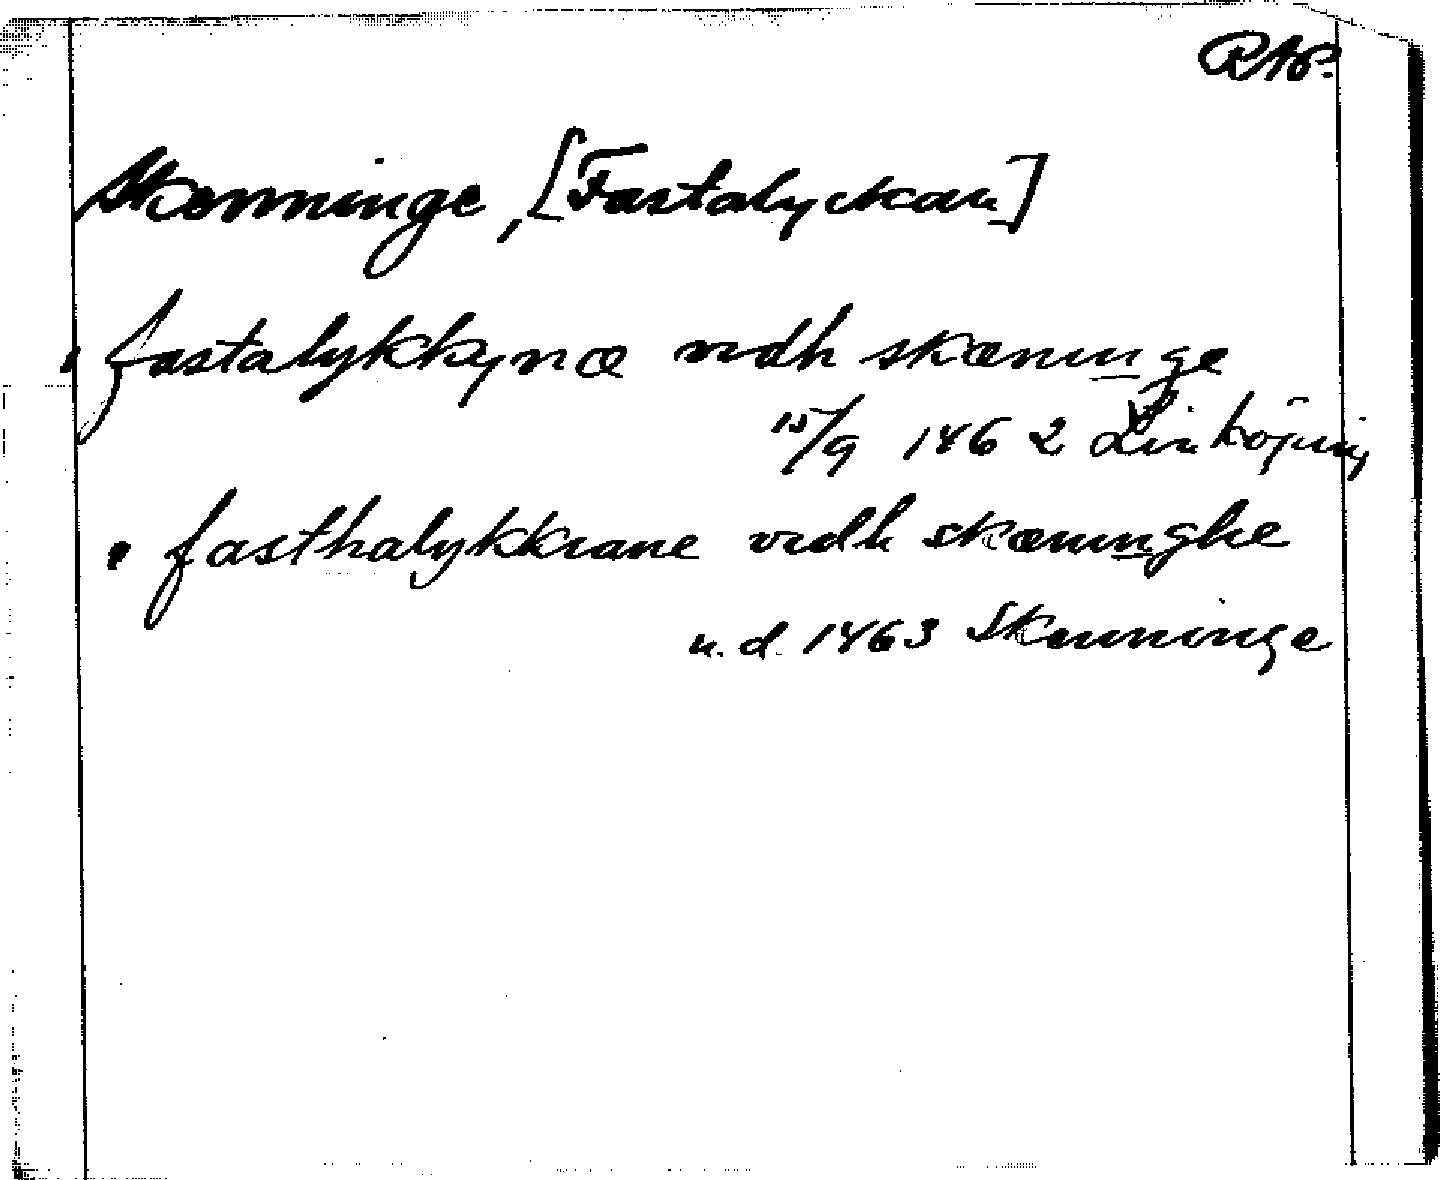 RAP.
Skenninge, [Fastalyckan]
fastalykkynæ vidh skæninge
15/9 1462 Linköping
fasthalykkiane vidh skæninghe
u. d. 1463 Skenninge